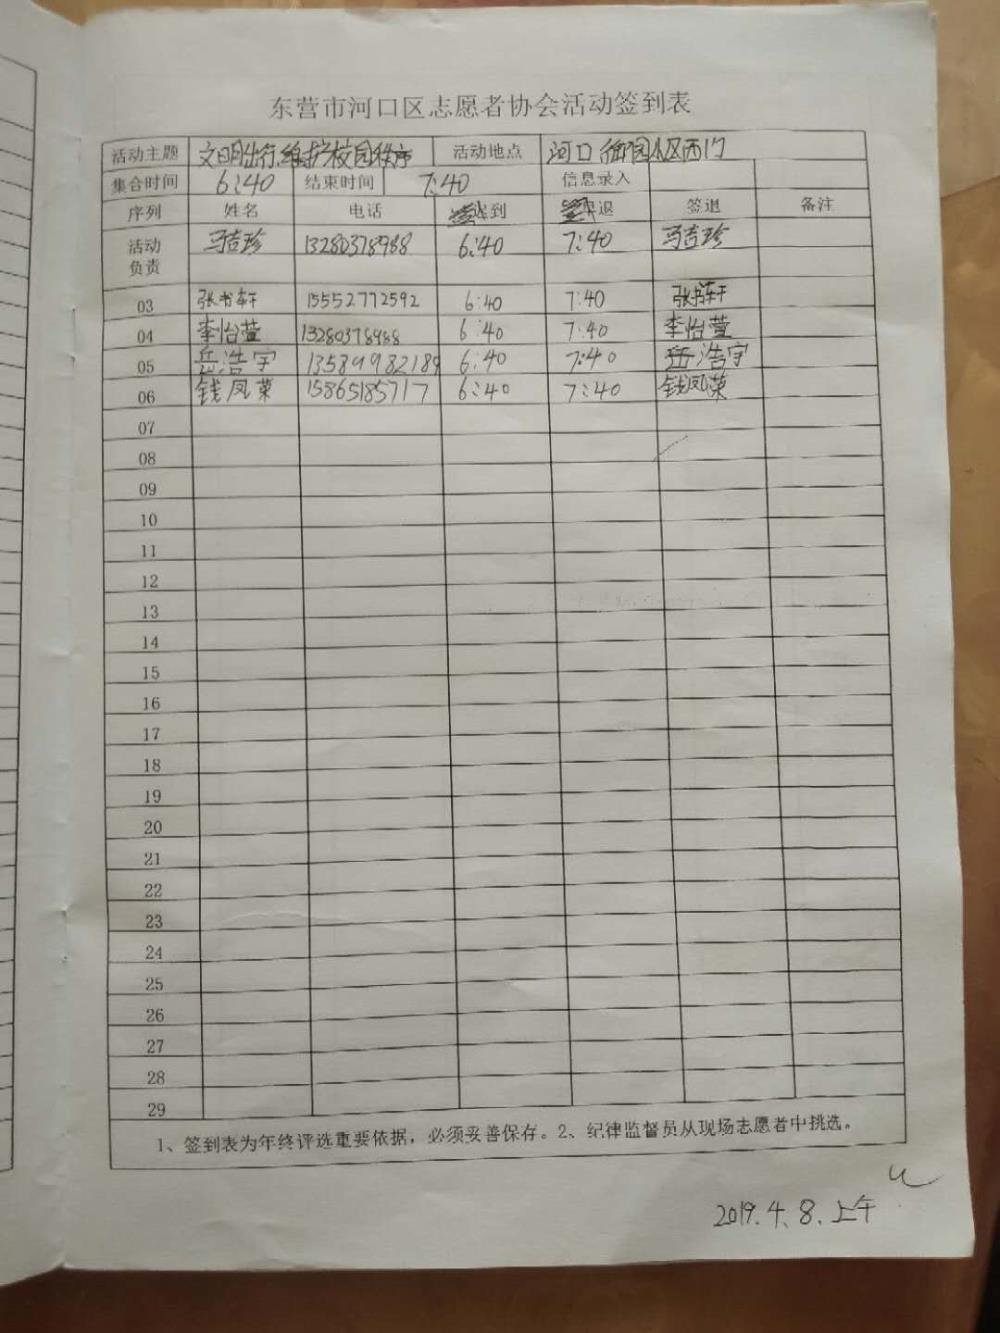 东营市河口区志愿者协会活动签到表
活动主题 文明出行,维护校园秩序 活动地点 河口御园小区西门
集合时间 6:40 结束时间 7:40 信息录入
序列 姓名 电话 到 退 签退 备注
活动负责 马吉珍 13280378988 6:40 7:40 马吉珍
03 张书轩 15552772592 6:40 7:40 张书轩
04 李怡萱 13280378988 6:40 7:40 李怡萱
05 岳浩宇 13589982189 6:40 7:40 岳浩宇
06 钱凤荣 15865185717 6:40 7:40 钱凤荣
07
08
09
10
11
12
13
14
15
16
17
18
19
20
21
22
23
24
25
26
27
28
29
1、签到表为年终评选重要依据，必须妥善保存。2、纪律监督员从现场志愿者中挑选。
2019.4.8.上午